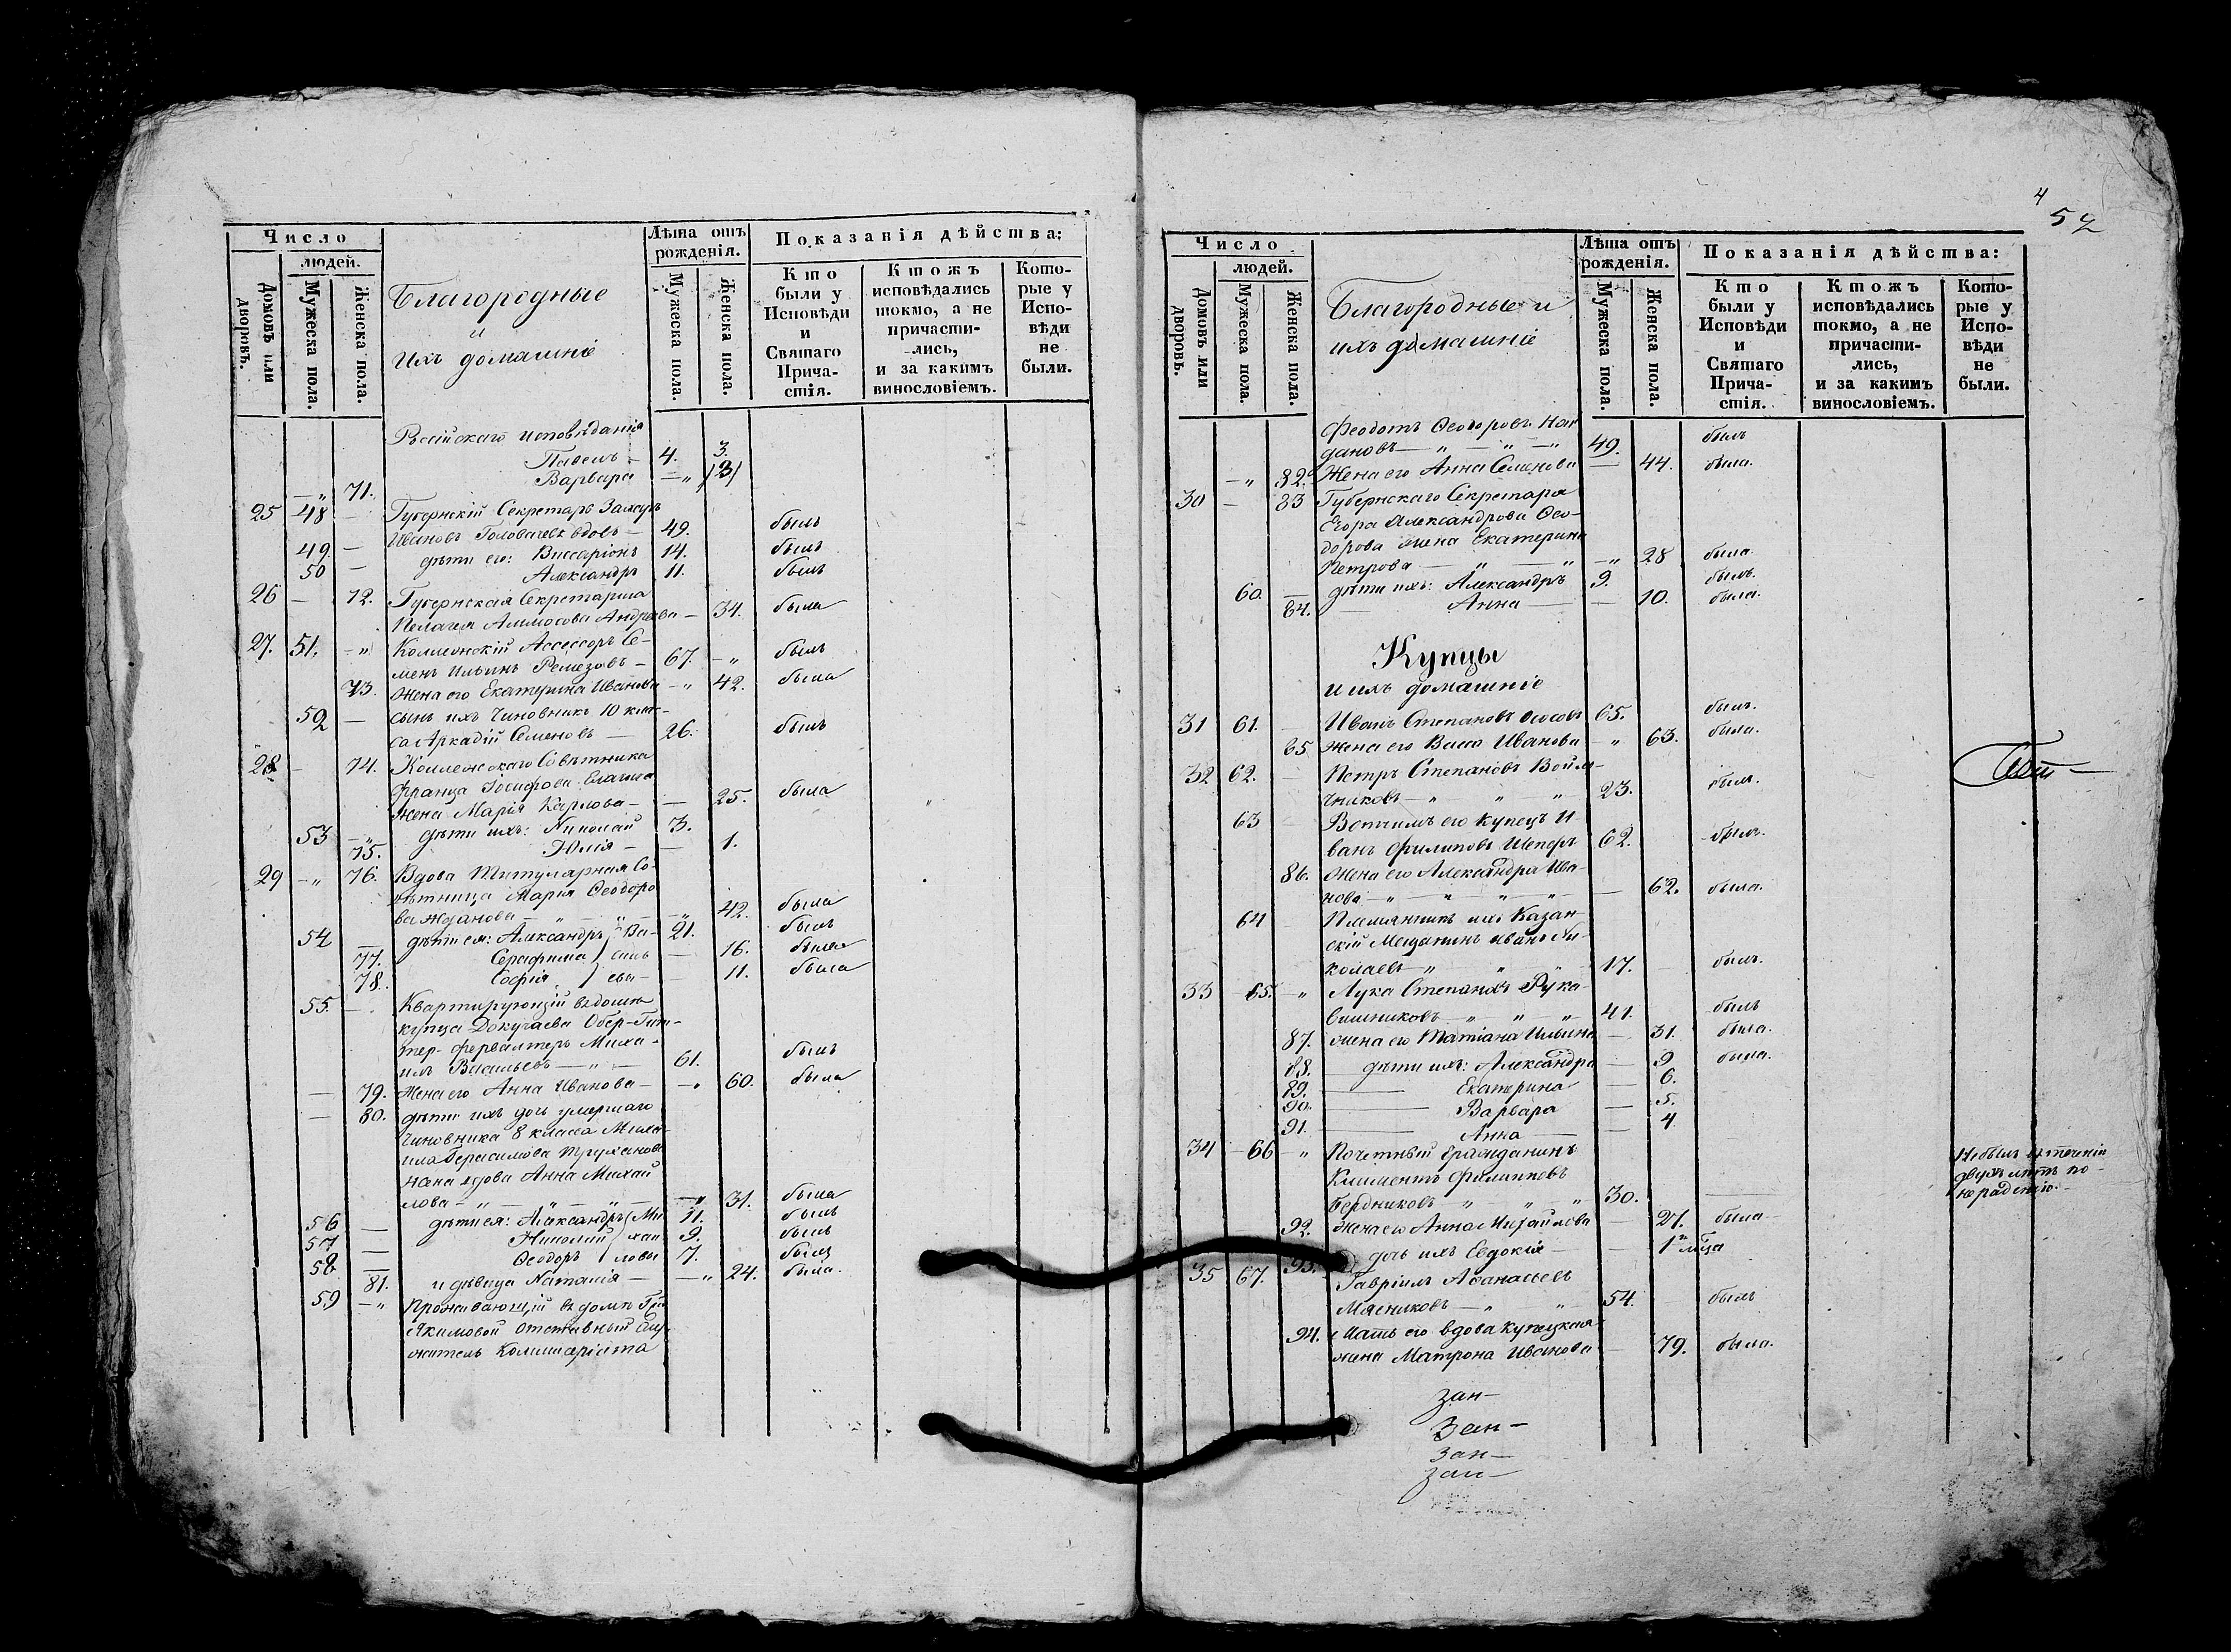 Число
людей.
Домовъ или дворовъ.
Мужеска пола.
Женска пола.
Благородные
и
Ихъ домашніе
Лѣта отъ рожденія.
Мужеска пола.
Женска пола.
Показанія дѣйства:
Кто были у Исповѣди и Святаго Причастія.
Ктожъ исповѣдались токмо, а не причастились, и за какимъ винословіемъ.
Которые у Исповѣди не были.
исповѣданія
Павелъ — 4. 3.
—„ 71. Варвара —„ (3)
25 48 — Губернскій Секретарь
Ивановъ Головачевъ вдовъ — 49. былъ
49. — дѣти его: Виссаріонъ 14. былъ
50 — Александръ 11. былъ
26 — 72. Губернская Секретарша
Пелагея Андреева — 34. была
27. 51. —„ Коллежскій Ассессоръ Се-
менъ Ильинъ Ремезовъ — 67. —„ былъ
73. Жена его Екатерина Иванова —„ 42. была
52 — сынъ ихъ Чиновникъ 10 клас-
са Аркадій Семеновъ — 26. былъ
28 — 74. Коллежскаго Совѣтника
Франца Іосифова
жена Марія Карлова — — 25. была
53 —„ дѣти ихъ: Николай 3.
75. Юлія — — 1.
29 —„ 76. Вдова Титулярная Со-
вѣтница Марія Ѳеодоро
ва Жданова — „ — „ — —„ 42. была
54 — дѣти ея: Александръ Ва- 21. былъ
77. Серафима силь — 16. была
78. Софія евы — — 11. была
55. — Квартирующій въ домѣ
купца Докучаева Обер-Гит-
тер-фервалтеръ Миха-
илъ Васильевъ — „ — 61. былъ
— 79. Жена его Анна Иванова — —„ 60. была
— 80. дѣти ихъ дочь умершаго
Чиновника 8 класса Миха-
ила Герасимова
вдова Анна Михай
лова — „ — „ — „ — —„ 31. была
56 — дѣти ея: Александръ Ми 11. былъ
57 — Николай хай 9. былъ
58 — Ѳеодоръ ловы 7. былъ
81. и дѣвица Наталія — —„ 24. была.
59 —„ Проживающій въ домѣ
Якимовой отставный Слу-
житель Коммиссаріата
4
52
Число
людей.
Домовъ или дворовъ.
Мужеска пола.
Женска пола.
Благородные и
ихъ домашніе
Лѣта отъ рожденія.
Мужеска пола.
Женска пола.
Показанія дѣйства:
Кто были у Исповѣди и Святаго Причастія.
Ктожъ исповѣдались токмо, а не причастились, и за какимъ винословіемъ.
Которые у Исповѣди не были.
Феодотъ Ѳеодоровъ
дановъ — „ — „ — „ 49. былъ
—„ 82. Жена его Анна Семенова — 44. была.
30 — 83 Губернскаго Секретаря
Егора Александрова Ѳео-
дорова жена Екатерина
Петрова — „ — „ —„ 28 была.
60. — дѣти ихъ: Александръ 9. былъ.
84. — Анна — — 10. была.
Купцы
и ихъ домашніе
31 61. — Иванъ Степановъ 65. былъ.
85 Жена его Васса Иванова — „ 63. была.
32 62. — Петръ Степановъ Войл-
чниковъ — „ „ „ 23. былъ.
63 — Вотчимъ его купецъ И
ванъ Филиповъ 62. былъ.
86. Жена его Александра Ива-
нова — „ — „ — „ — 62. была.
64 — Племянникъ ихъ Казан-
скій Мещанинъ Иванъ Ни-
колаевъ — „ „ „ 17. былъ.
33 65. „ Лука Степановъ Рука-
вишниковъ — „ — „ — „ 41. былъ
87. жена его Татіана Ильина — 31. была.
88. — дѣти ихъ: Александра — 9 была.
89. — Екатерина — 6.
90. — Варвара — 5.
91. — Анна — — 4
34 66 „ Почетный Гражданинъ
Климентъ Филипповъ
Бердниковъ — „ „ „ 30. —
Не былъ въ теченіи
двухъ лѣтъ по
нерадѣнію.
92. Жена его Анна Михайлова — 27. была
93. дочь ихъ Евдокія — — 1 мца
35 67. Гавріилъ Аѳанасьевъ
Мясниковъ — „ „ 54. былъ
94. Мать его вдова купецкая
жена Матрона Иванова — 79. была.